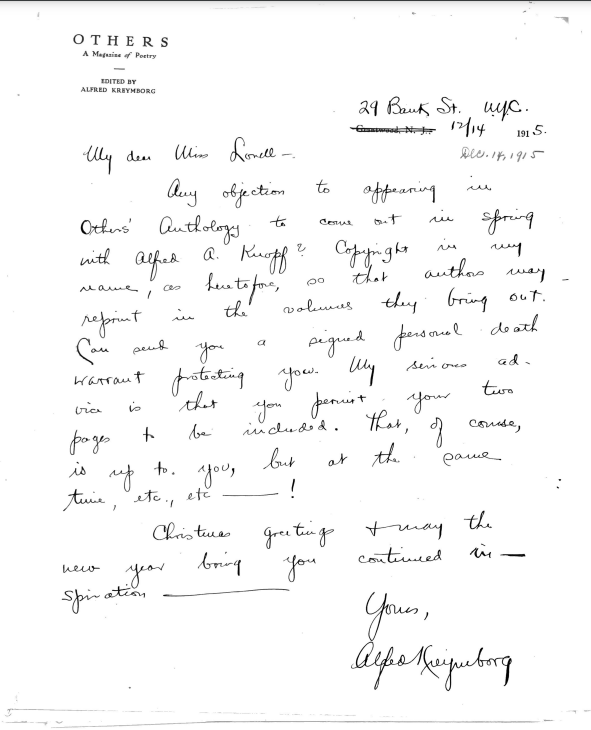 OTHERS
A Magazine of Poetry
EDITED BY
ALFRED KREYMBORG
29 Bank St. N.Y.C.
Grantwood, N. J., 12/14 1915.
Dec. 14, 1915
My dear Miss Lowell —.
Any objection to appearing in
Others' Anthology to come out in Spring
with Alfred A. Knopf? Copyright in my
name, as heretofore, so that authors may
reprint in the volumes they bring out.
Can send you a signed personal death
warrant protecting you. My serious ad-
vice is that you permit your two
pages to be included. That, of course,
is up to. you, but at the same
time, etc., etc —— !
Christmas greetings + may the
new year bring you continued in —
spiration ————
Yours,
Alfred Kreymborg